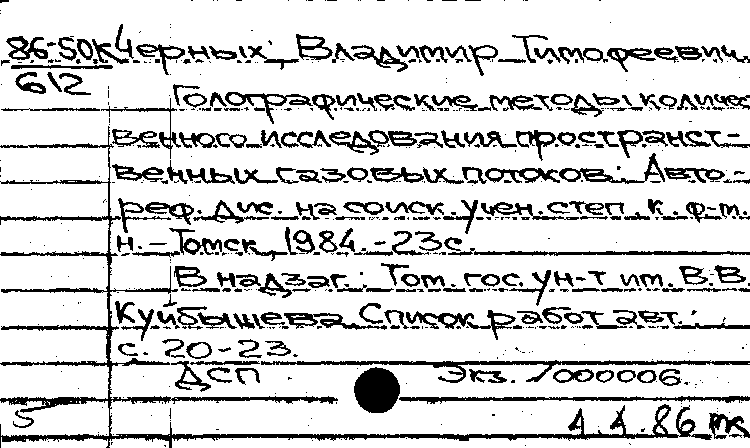 86-50к Черных, Владимир Тимофеевич.
612
Голографические методы количес
венного исследования пространст-
венных газовых потоков: Авто-
реф. дис. на соиск. учен. степ. к. ф-м.
н. – Томск, 1984. - 23с.
В надзаг.: Том. гос. ун-т им. В.В.
Куйбышева. Список работ авт.:
с. 20-23.
ДСП Экз. 1000006.
5
4.4.86